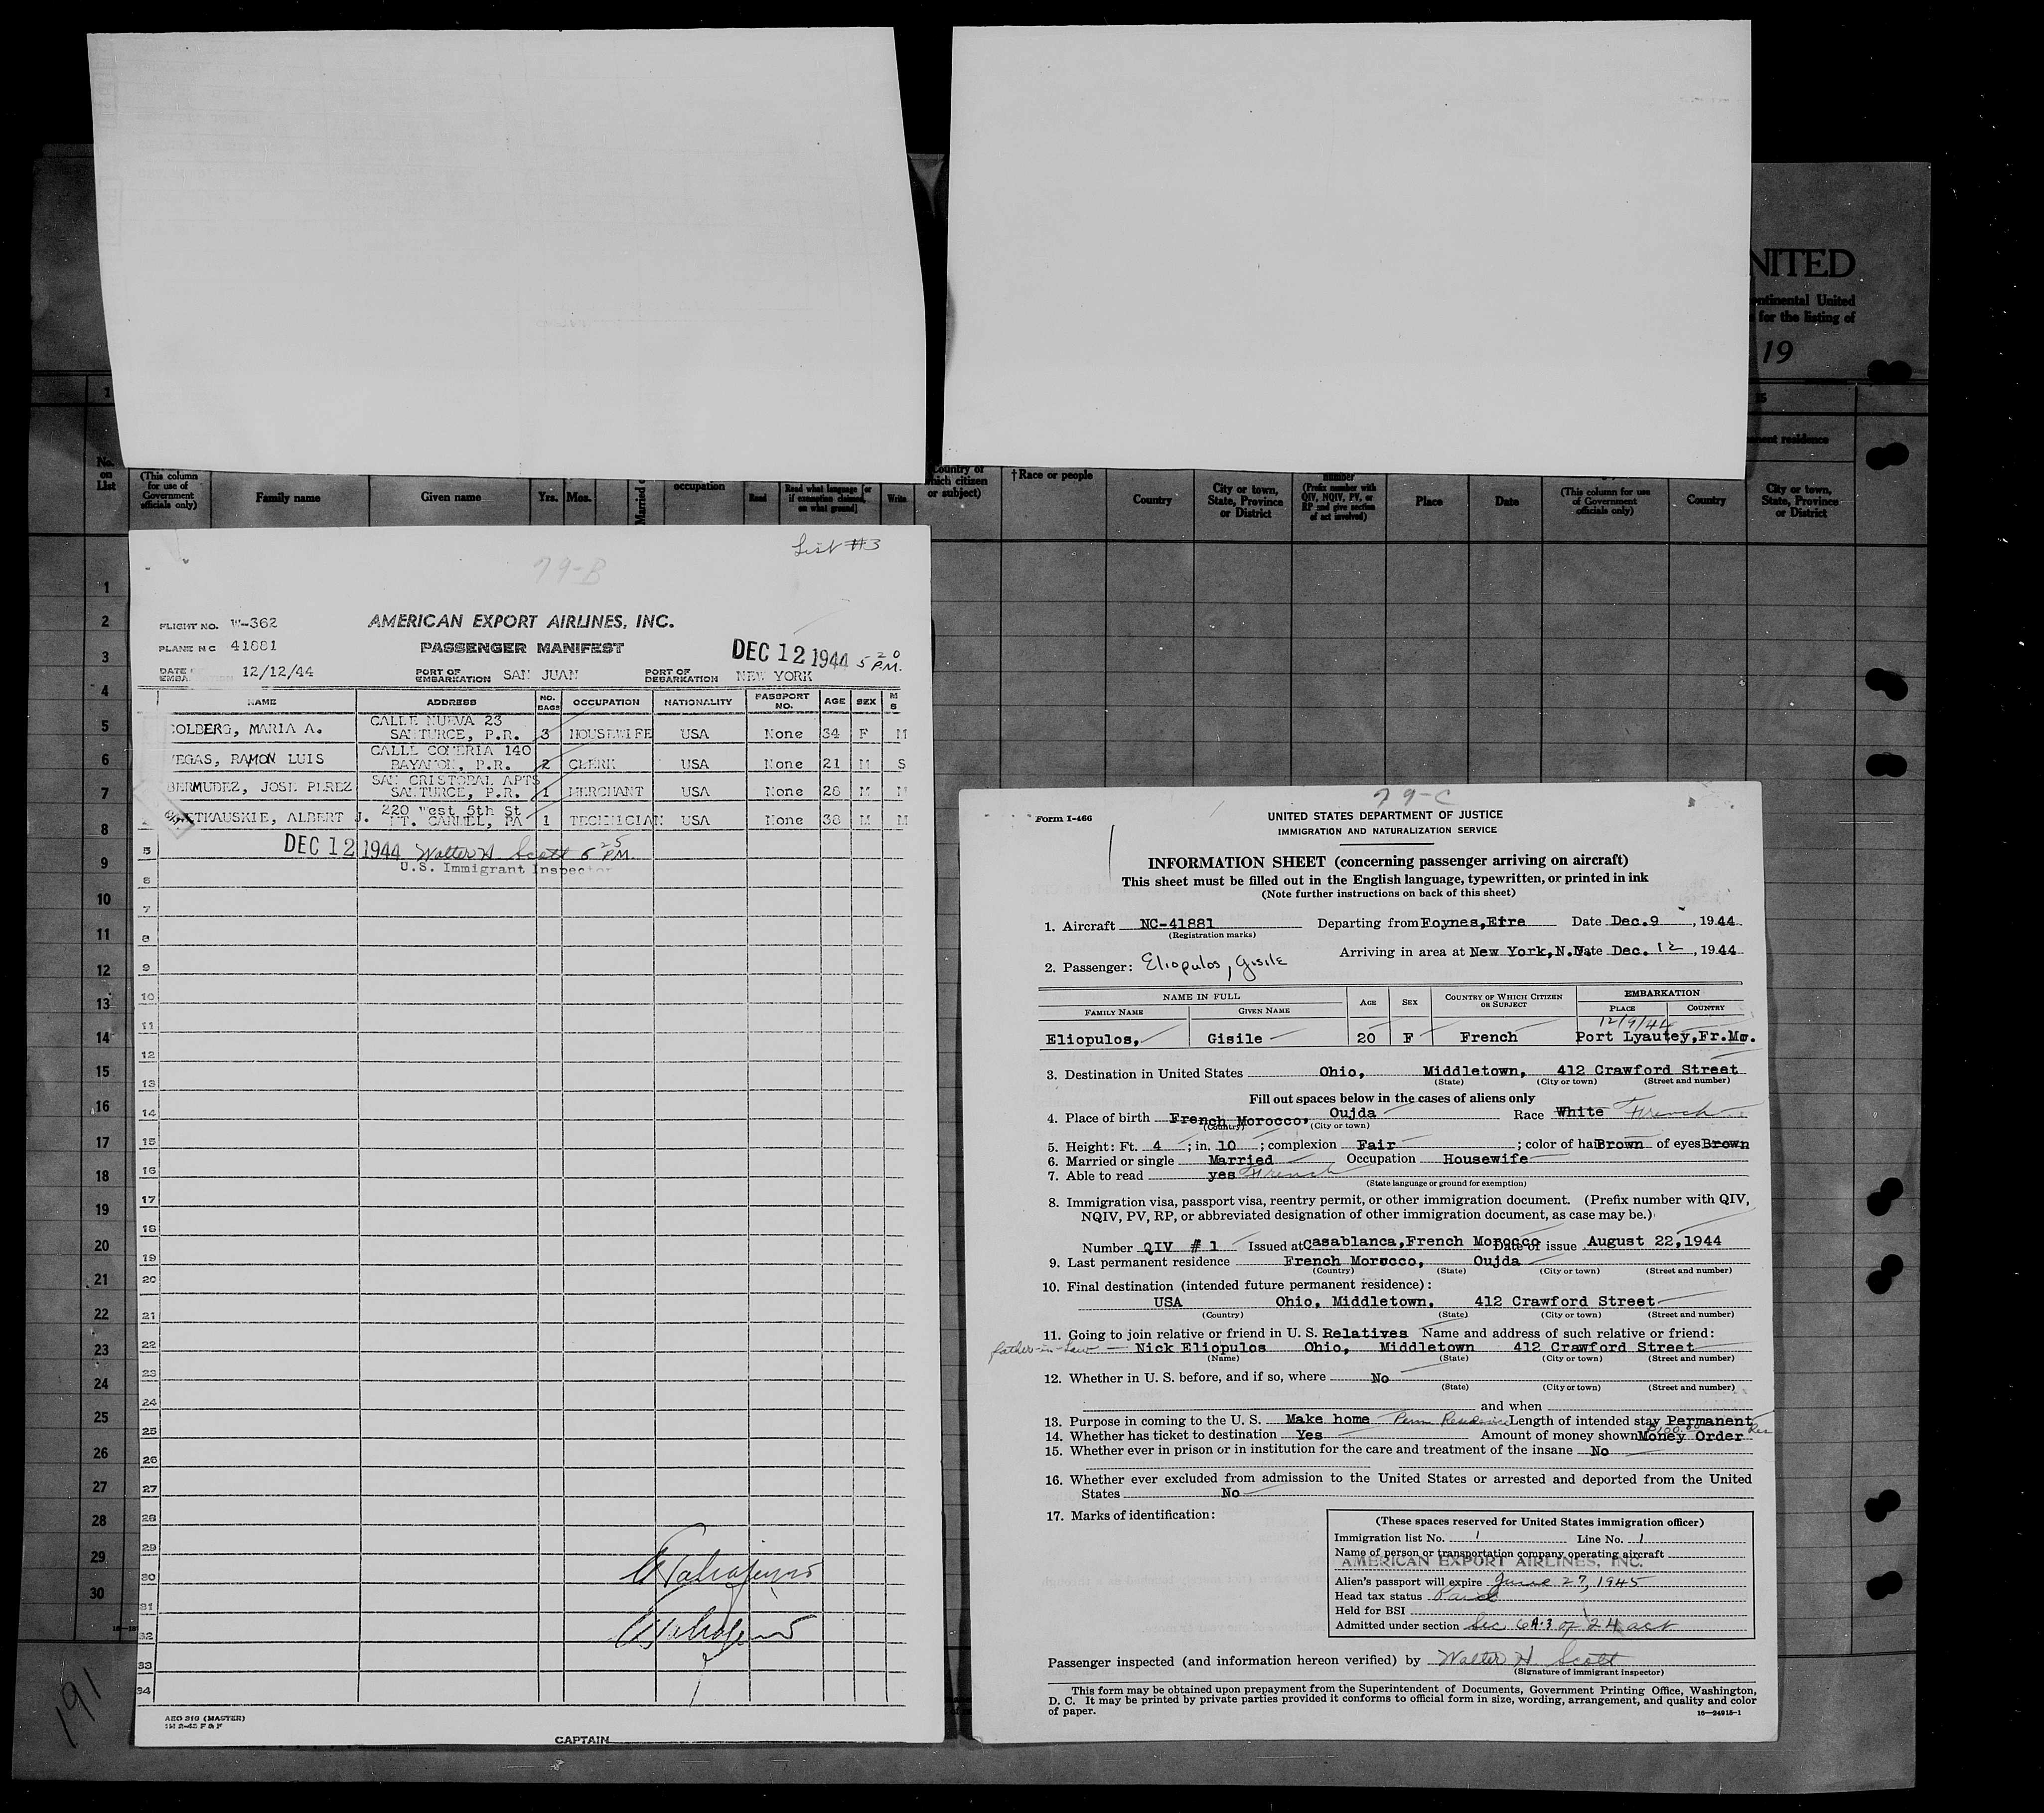 NITED
ontinental United
for the listing of
19
1
15
nent residence
No.
on
List
(This column
for use of
Government
officials only)
Family name
Given name
Yrs.
Mos.
Married
occupation
Read
Read what language [or
if exemption claimed,
on what ground]
Write
Country of
which citizen
or subject)
†Race or people
Country
City or town,
State, Province
or District
number
(Prefix number with
QIV, NQIV, PV, or
RP and give section
of act involved)
Place
Date
(This column for use
of Government
officials only)
Country
City or town,
State, Province
or District
1
2
3
4
5
6
7
8
9
10
11
12
13
14
15
16
17
18
19
20
21
22
23
24
25
26
27
28
29
30
191
List #3
79-B
FLIGHT NO. W-362
AMERICAN EXPORT AIRLINES, INC.
PLANE NC 41881
PASSENGER MANIFEST
DEC 12 1944 5 20 P.M.
DATE
EMBA
12/12/44
PORT OF
EMBARKATION SAN JUAN
PORT OF
DEBARKATION NEW YORK
NAME ADDRESS NO. BAGS OCCUPATION NATIONALITY PASSPORT NO. AGE SEX M S
OLBERG, MARIA A. CALLE NUEVA 23
SANTURCE, P.R. 3 HOUSEWIFE USA None 34 F M
VEGAS, RAMON LUIS CALLE COMERIA 140
BAYAMON, P.R. 2 CLERK USA None 21 M S
BERMUDEZ, JOSE PEREZ SAN CRISTOBAL APTS
SANTURCE, P.R. 1 MERCHANT USA None 28 M M
ETKAUSKIE, ALBERT J. 220 West 5th St
MT. CARMEL, PA 1 TECHNICIAN USA None 38 M M
5 DEC 12 1944 Walter H. Scott 6 25 P.M.
U.S. Immigrant Inspector
6
7
8
9
10
11
12
13
14
15
16
17
18
19
20
21
22
23
24
25
26
27
28
29
30
31
32
33
34
AEO 316 (MASTER)
1M 2-43 F & F
CAPTAIN
79-C
Form I-466
UNITED STATES DEPARTMENT OF JUSTICE
IMMIGRATION AND NATURALIZATION SERVICE
INFORMATION SHEET (concerning passenger arriving on aircraft)
This sheet must be filled out in the English language, typewritten, or printed in ink
(Note further instructions on back of this sheet)
1. Aircraft NC-41881 Departing from Foynes,Eire Date Dec.9 , 1944
(Registration marks)
Arriving in area at New York,N.Y. Date Dec. 12 , 1944
2. Passenger: Eliopulos, Gisile
NAME IN FULL AGE SEX COUNTRY OF WHICH CITIZEN OR SUBJECT EMBARKATION
FAMILY NAME GIVEN NAME PLACE COUNTRY
12/9/44
Eliopulos, Gisile 20 F French Port Lyautey,Fr.Mo.
3. Destination in United States Ohio, Middletown, 412 Crawford Street
(State) (City or town) (Street and number)
Fill out spaces below in the cases of aliens only
4. Place of birth French Morocco, Oujda Race White French
(Country) (City or town)
5. Height: Ft. 4 ; in. 10 ; complexion Fair ; color of hair Brown of eyes Brown
6. Married or single Married Occupation Housewife
7. Able to read yes French
(State language or ground for exemption)
8. Immigration visa, passport visa, reentry permit, or other immigration document. (Prefix number with QIV,
NQIV, PV, RP, or abbreviated designation of other immigration document, as case may be.)
Number QIV #1 Issued at Casablanca,French Morocco Date of issue August 22,1944
9. Last permanent residence French Morocco, Oujda
(Country) (State) (City or town) (Street and number)
10. Final destination (intended future permanent residence):
USA Ohio, Middletown, 412 Crawford Street
(Country) (State) (City or town) (Street and number)
11. Going to join relative or friend in U. S. Relatives Name and address of such relative or friend:
father-in-law — Nick Eliopulos Ohio, Middletown 412 Crawford Street
(Name) (State) (City or town) (Street and number)
12. Whether in U. S. before, and if so, where No
(State) (City or town) (Street and number)
and when
13. Purpose in coming to the U. S. Make home Perm Residence Length of intended stay Permanent
Res
14. Whether has ticket to destination Yes Amount of money shown Money Order
15. Whether ever in prison or in institution for the care and treatment of the insane No
16. Whether ever excluded from admission to the United States or arrested and deported from the United
States No
17. Marks of identification:
(These spaces reserved for United States immigration officer)
Immigration list No. 1 Line No. 1
Name of person or transportation company operating aircraft
AMERICAN EXPORT AIRLINES, INC.
Alien's passport will expire June 27, 1945
Head tax status Paid
Held for BSI
Admitted under section Sec 6A-3 of 24 act
Passenger inspected (and information hereon verified) by Walter H. Scott
(Signature of immigrant inspector)
This form may be obtained upon prepayment from the Superintendent of Documents, Government Printing Office, Washington,
D. C. It may be printed by private parties provided it conforms to official form in size, wording, arrangement, and quality and color
of paper.
16—24915-1